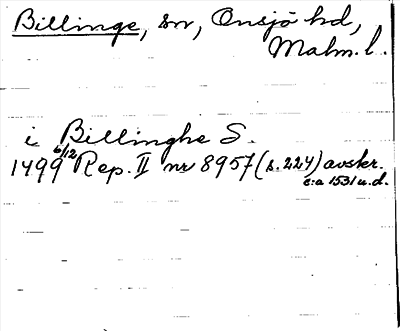 Billinge, sn, Onsjö hd,
Malm. l.
i Billinghe S.
1499 6/12 Rep. II nr 8957 (s. 224) avskr.
c:a 1531 u.d.